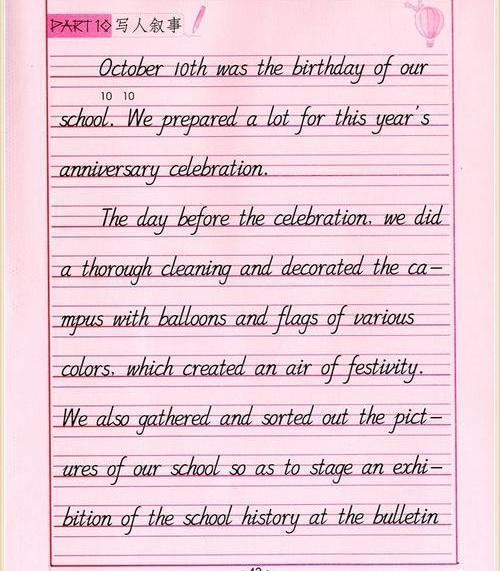 PART 10 写人叙事
October 10th was the birthday of our
10 10
school. We prepared a lot for this year's
anniversary celebration.
The day before the celebration, we did
a thorough cleaning and decorated the ca-
mpus with balloons and flags of various
colors, which created an air of festivity.
We also gathered and sorted out the pict-
ures of our school so as to stage an exhi-
bition of the school history at the bulletin